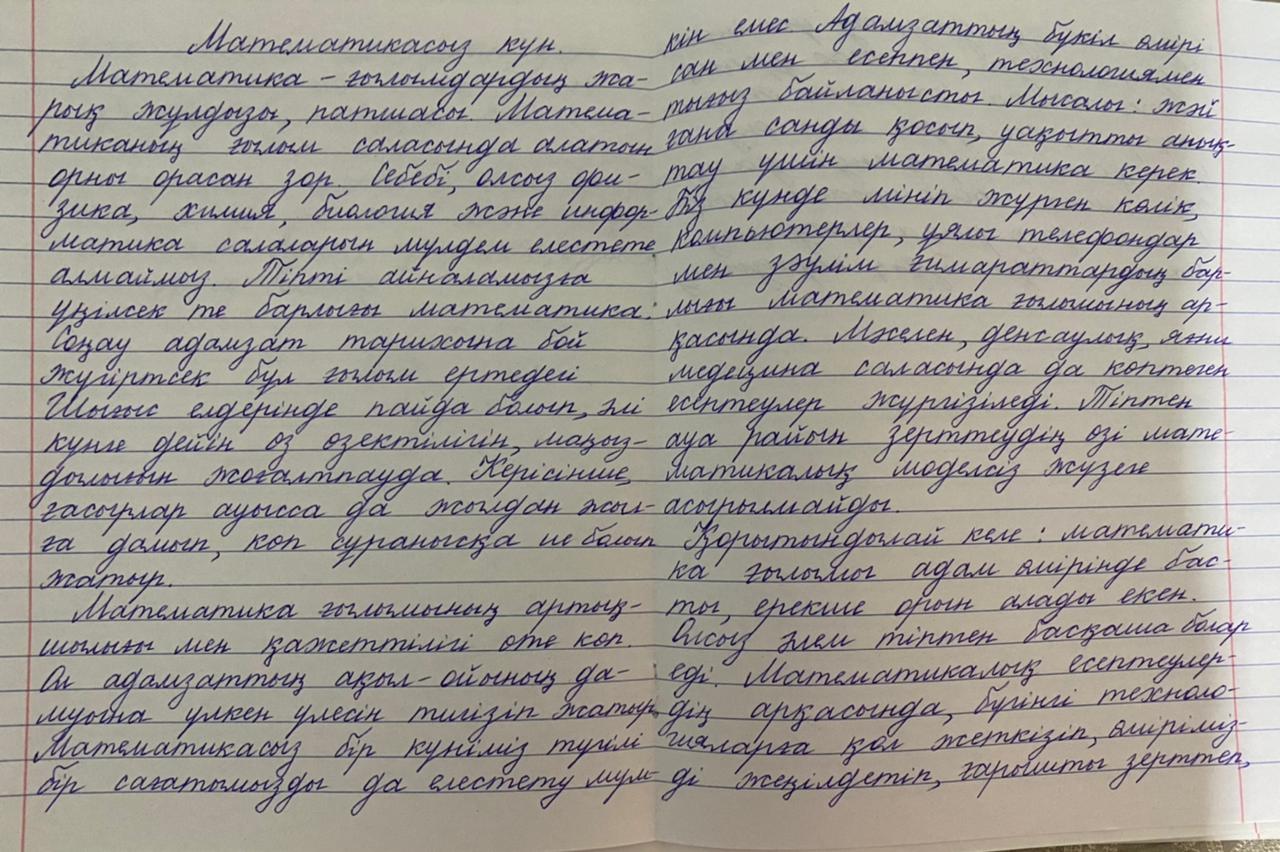 Математикасыз күн.
Математика – ғылымдардың жа-
рық жұлдызы, патшасы. Матема-
тиканың ғылым саласында алатын
орны орасан зор. Себебі, олсыз фи-
зика, химия, биология және инфор-
матика салаларын мүлдем елестете
алмаймыз. Тіпті айналамызға
үңілсек те барлығы математика.
Сонау адамзат тарихына бой
жүгіртсек бұл ғылым ертедегі
Шығыс елдерінде пайда болып, әлі
күнге дейін өз өзектілігін, маңыз-
дылығын жоғалтпауда. Керісінше,
ғасырлар ауысса да жылдан жыл-
ға дамып, көп сұранысқа ие болып
жатыр.
Математика ғылымының артық-
шылығы мен қажеттілігі өте көп.
Ол адамзаттың ақыл-ойының да-
муына үлкен үлесін тигізіп жатыр.
Математикасыз бір күніміз түгілі
бір сағатымызды да елестету мүм-
кін емес. Адамзаттың бүкіл өмірі
сан мен есеппен, технологиямен
тығыз байланысты. Мысалы: жәй
ғана санды қосып, уақытты анық-
тау үшін математика керек.
Біз күнде мініп жүрген көлік,
компьютерлер, ұялы телефондар
мен зәулім ғимараттардың бар-
лығы математика ғылымының ар-
қасында. Мәселен, денсаулық, яғни
медецина саласында да көптеген
есептеулер жүргізіледі. Тіптен
ауа райын зерттеудің өзі мате-
матикалық моделсіз жүзеге
асырылмайды.
Қорытындылай келе: математи-
ка ғылымы адам өмірінде бас-
ты, ерекше орын алады екен.
Олсыз әлем тіптен басқаша болар
еді. Математикалық есептеулер-
дің арқасында, бүгінгі техноло-
гияларға қол жеткізіп, өміріміз-
ді жеңілдетіп, ғарышты зерттеп,